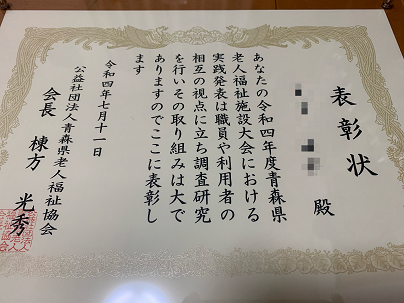 表彰状
殿
あなたの令和四年度青森県
老人福祉施設大会における
実践発表は職員や利用者の
相互の視点に立ち調査研究
を行いその取り組みは大で
ありますのでここに表彰し
ます
令和四年七月十一日
公益社団法人青森県老人福祉協会
会長 棟方 光秀